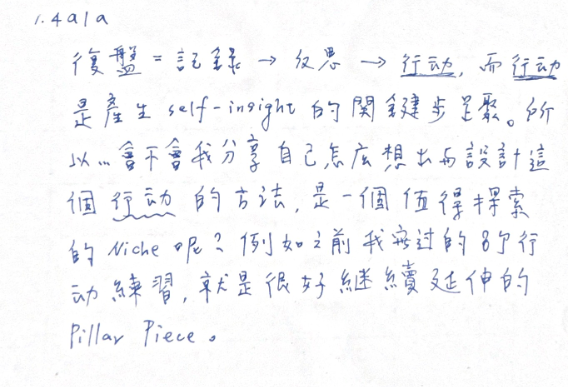 1.4a1a
復盤=記錄→反思→行动,而行动
是產生 self-insight 的関鍵步驟。所
以…會不會我分享自己怎広想出而設計這
個行动的方法,是一個值得探索
的 Niche 呢?例如之前我寫过的8个行
动練習,就是很好継續延伸的
Pillar Piece。